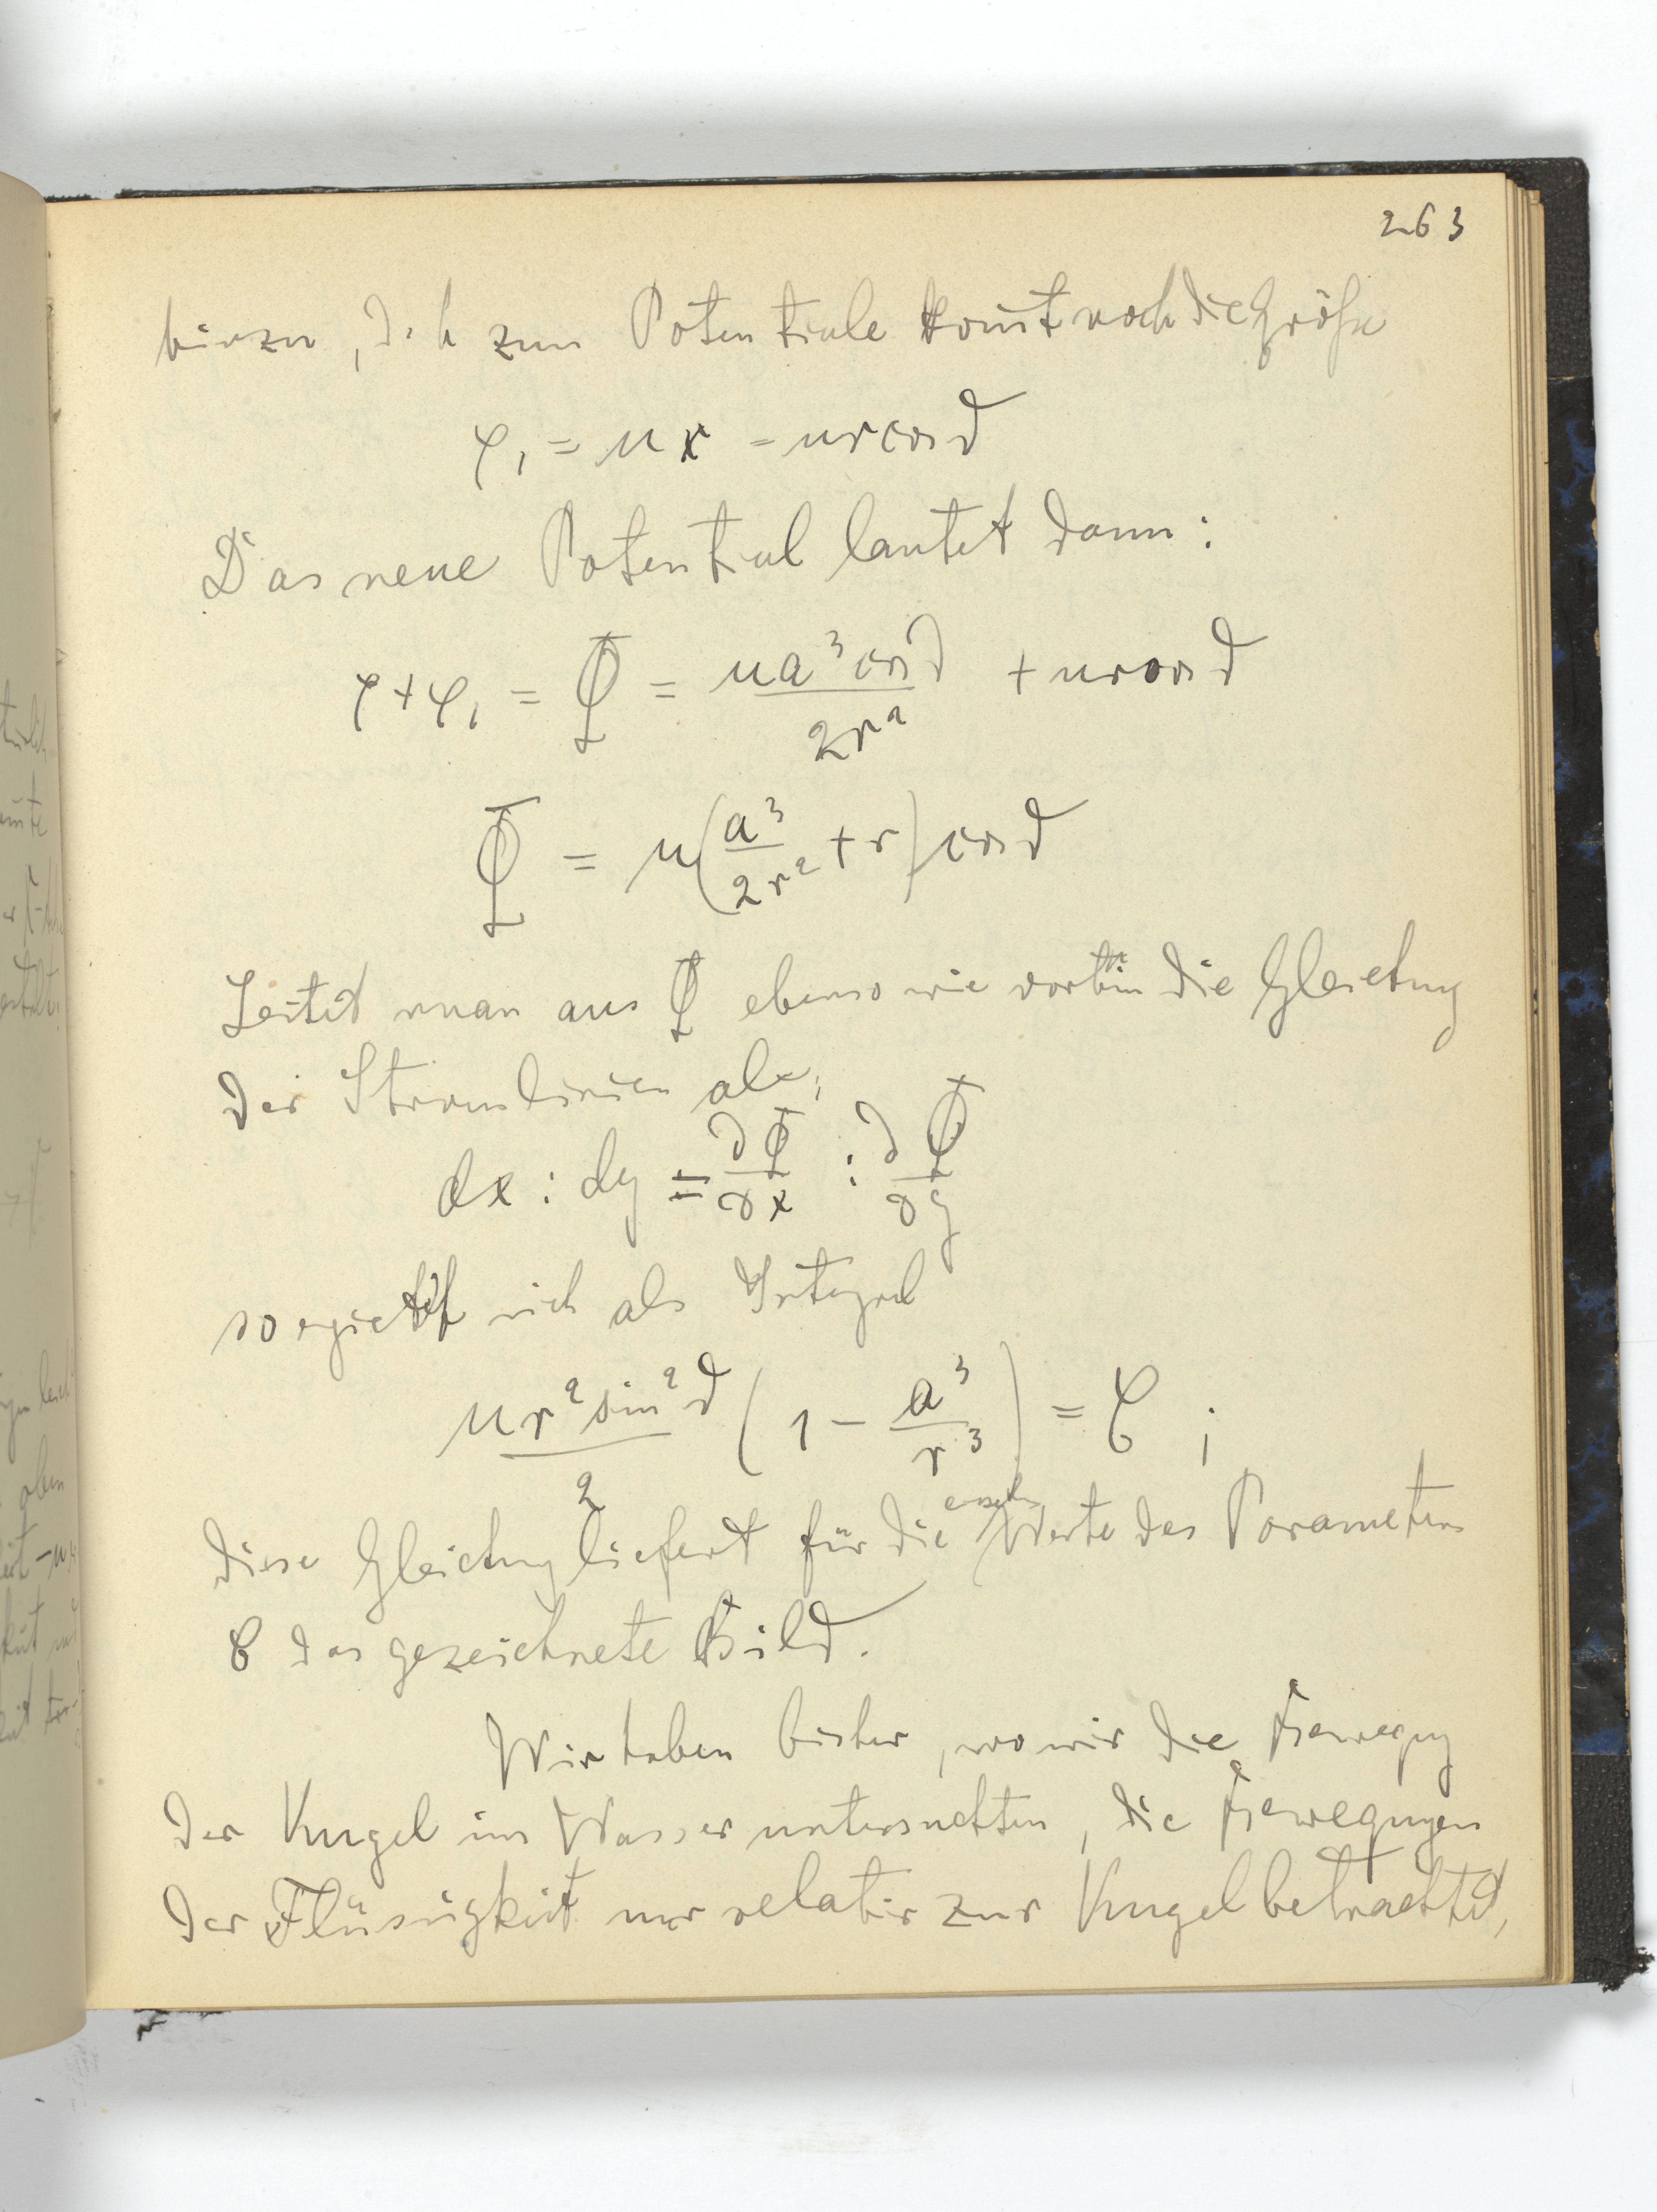 263
hinzu, d. h zum Potentiale kom̅t noch die Größe
φ₁ = ux = ur cos ϑ
Das neue Potential lautet dann:
φ + φ₁ = Φ = ua³ cos ϑ / 2r² + ur cos ϑ
Φ = u(a³/2r² + r) cos ϑ
Leitet man aus Φ ebenso wie vorhin die Gleichung
der Stromlinien ab;
dx : dy = ∂Φ/∂x : ∂Φ/∂y
so ergiebt sich als Integral
ur² sin² ϑ / 2 (1 − a³/r³) = C ;
diese Gleichung liefert für die einzelnen Werte des Parameters
C das gezeichnete Bild.
Wir haben bisher, wo wir die Bewegung
der Kugel im Wasser untersuchten, die Bewegungen
der Flüssigkeit nur relativ zur Kugel betrachtet,